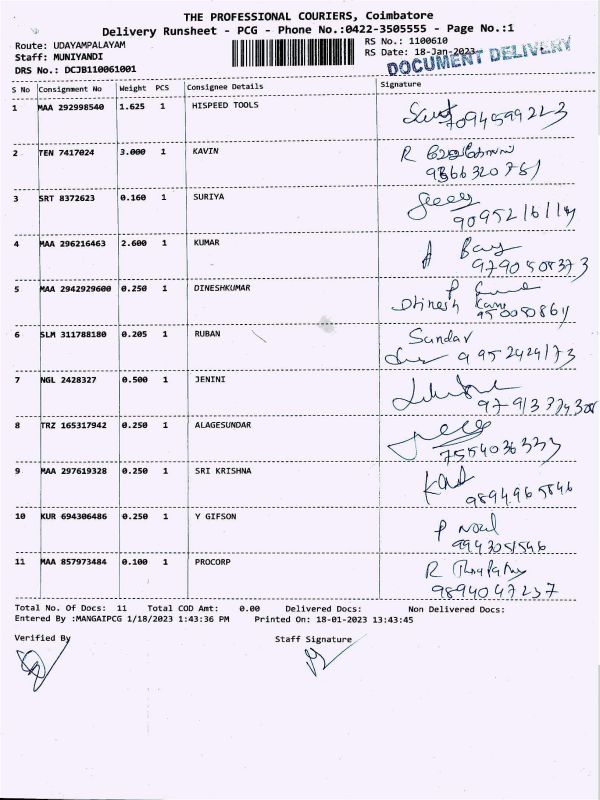 THE PROFESSIONAL COURIERS, Coimbatore
Delivery Runsheet - PCG - Phone No.:0422-3505555 - Page No.:1
Route: UDAYAMPALAYAM RS No.: 1100610
Staff: MUNIYANDI RS Date: 18-Jan-2023
DRS No.: DCJB110061001 DOCUMENT DELIVERY
S No Consignment No Weight PCS Consignee Details Signature
1 MAA 292998540 1.625 1 HISPEED TOOLS
7094599223
2 TEN 7417024 3.000 1 KAVIN R
9866320781
3 SRT 8372623 0.160 1 SURIYA
4 MAA 296216463 2.600 1 KUMAR
9790508373
5 MAA 2942929600 0.250 1 DINESHKUMAR
Dhinesh
6 SLM 311788180 0.205 1 RUBAN Sundar
9952424173
7 NGL 2428327 0.500 1 JENINI
8 TRZ 165317942 0.250 1 ALAGESUNDAR
7554036333
9 MAA 297619328 0.250 1 SRI KRISHNA
9894965846
10 KUR 694306486 0.250 1 Y GIFSON P
9943051546
11 MAA 857973484 0.100 1 PROCORP R
9894047237
Total No. Of Docs: 11 Total COD Amt: 0.00 Delivered Docs: Non Delivered Docs:
Entered By :MANGAIPCG 1/18/2023 1:43:36 PM Printed On: 18-01-2023 13:43:45
Verified By Staff Signature